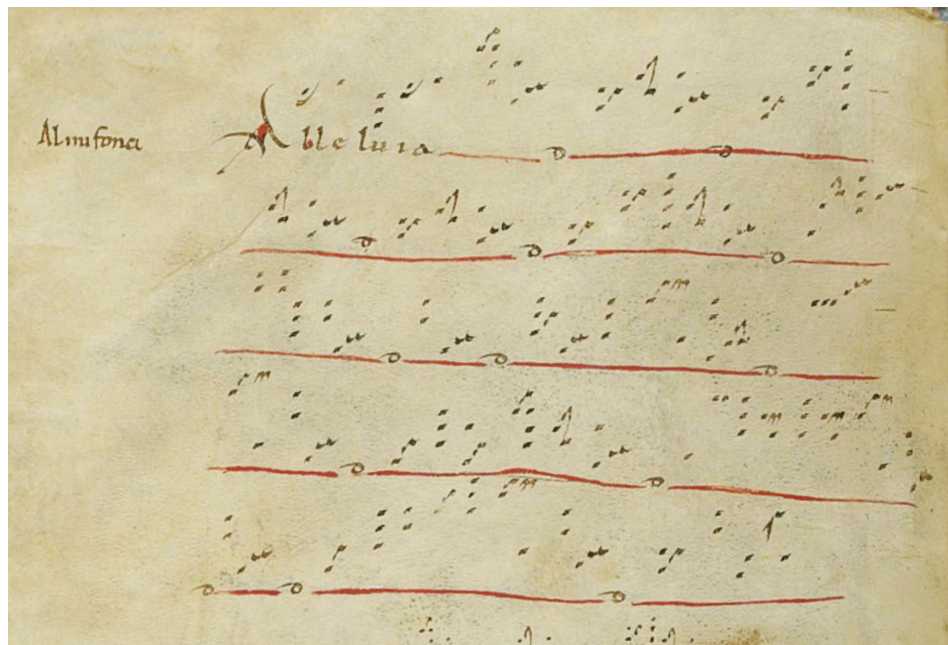 Almifona
Alleluia